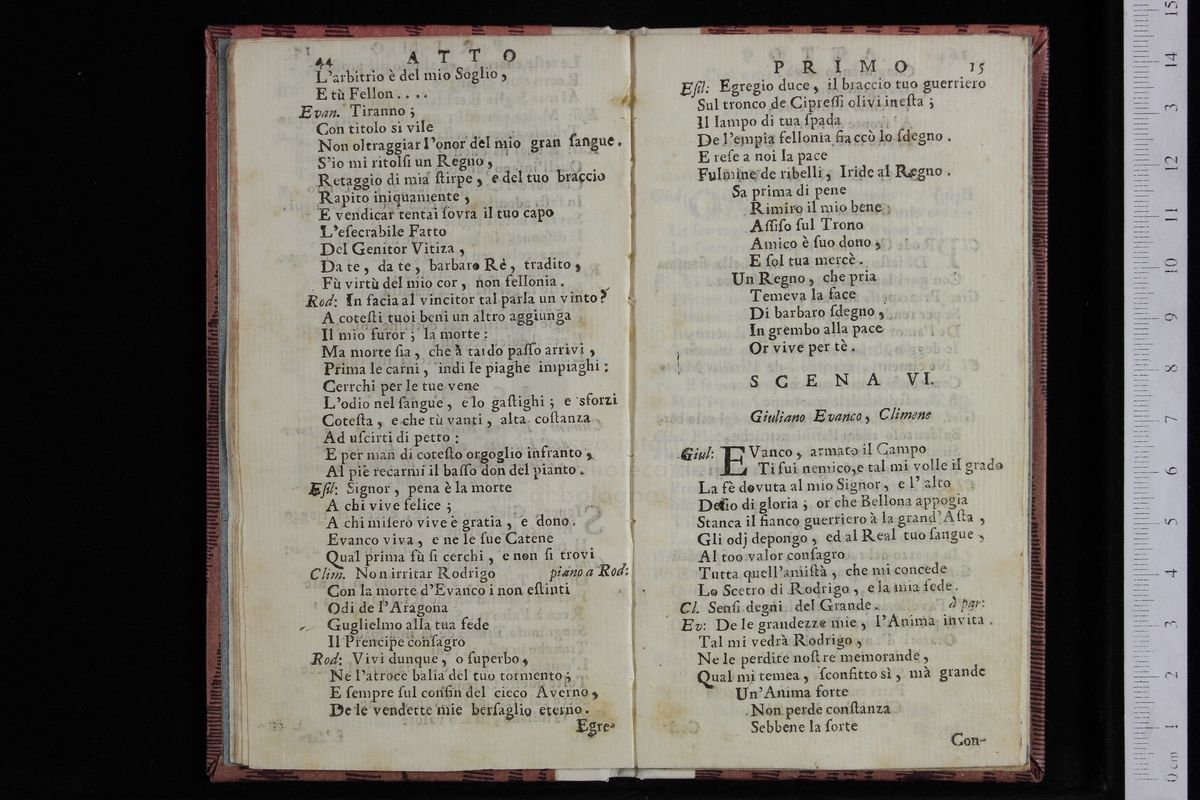 44 ATTO
L'arbitrio è del mio Soglio ,
E tù Fellon . . . .
Evan. Tiranno ;
Con titolo sì vile
Non oltraggiar l'onor del mio gran ſangue .
S'io mi ritolſi un Regno ,
Retaggio di mia ſtirpe , e del tuo braccio
Rapito iniquamente ,
E vendicar tentai ſovra il tuo capo
L'eſecrabile Fatto
Del Genitor Vitiza ,
Da te , da te , barbaro Rè , tradito ,
Fù virtù del mio cor , non fellonia .
Rod: In facia al vincitor tal parla un vinto ?
A coteſti tuoi beni un altro aggiunga
Il mio furor ; la morte :
Ma morte ſia , che à tardo paſſo arrivi ,
Prima le carni , indi le piaghe impiaghi :
Cerrchi per le tue vene
L'odio nel ſangue , e lo gaſtighi ; e sforzi
Coteſta , e che tù vanti , alta coſtanza
Ad uſcirti di petto :
E per man di coteſto orgoglio infranto ,
Al piè recarmi il baſſo don del pianto .
Eſil: Signor , pena è la morte
A chi vive felice ;
A chi miſero vive è gratia , e dono .
Evanco viva , e ne le ſue Catene
Qual prima fù ſi cerchi , e non ſi trovi
Clim. Non irritar Rodrigo piano a Rod:
Con la morte d'Evanco i non eſtinti
Odi de l'Aragona
Guglielmo alla tua fede
Il Prencipe conſagro
Rod: Vivi dunque , o ſuperbo ,
Ne l'atroce balia del tuo tormento ;
E ſempre ſul confin del cieco Averno ,
De le vendette mie berſaglio eterno .
Egre-
PRIMO 15
Eſil: Egregio duce , il braccio tuo guerriero
Sul tronco de Cipreſſi olivi ineſta ;
Il lampo di tua ſpada
De l'empia fellonia fiaccò lo ſdegno .
E reſe a noi la pace
Fulmine de ribelli , Iride al Regno .
Sa prima di pene
Rimiro il mio bene
Aſſiſo ſul Trono
Amico è ſuo dono ,
E ſol tua mercè .
Un Regno , che pria
Temeva la face
Di barbaro ſdegno ,
In grembo alla pace
Or vive per tè .
SCENA VI.
Giuliano Evanco, Climene
Giul: EVanco , armato il Campo
Ti fui nemico,e tal mi volle il grado
La fè dovuta al mio Signor , e l' alto
Deſio di gloria ; or che Bellona appogia
Stanca il fianco guerriero à la grand'Aſta ,
Gli odj depongo , ed al Real tuo ſangue ,
Al too valor conſagro
Tutta quell'amiſtà , che mi concede
Lo Scetro di Rodrigo , e la mia fede .
Cl. Senſi degni del Grande . à par:
Ev: De le grandezze mie , l'Anima invita .
Tal mi vedrà Rodrigo ,
Ne le perdite noſtre memorande ,
Qual mi temea , ſconfitto sì , mà grande
Un'Anima forte
Non perde conſtanza
Sebbene la ſorte
Con-
15
14
13
12
11
10
9
8
7
6
5
4
3
2
1
0 cm